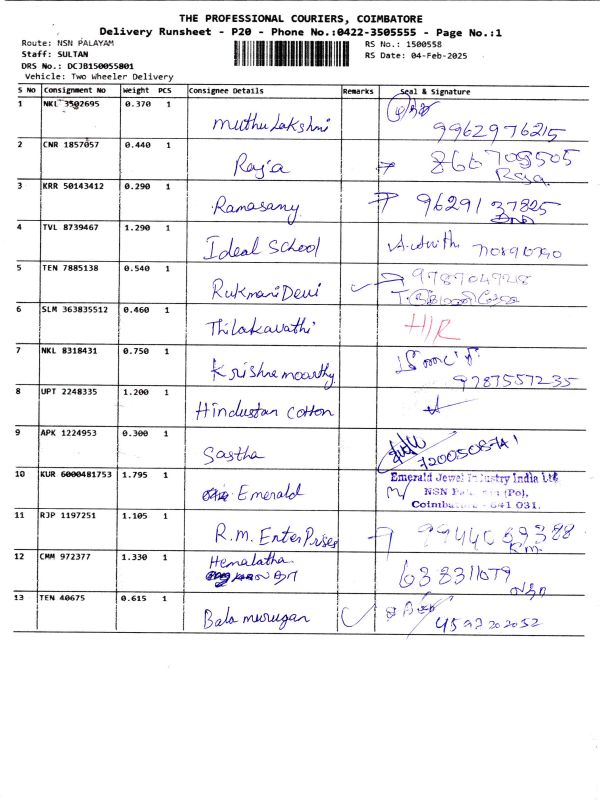 THE PROFESSIONAL COURIERS, COIMBATORE
Delivery Runsheet - P20 - Phone No.:0422-3505555 - Page No.:1
Route: NSN PALAYAM RS No.: 1500558
Staff: SULTAN RS Date: 04-Feb-2025
DRS No.: DCJB150055801
Vehicle: Two Wheeler Delivery
S No Consignment No Weight PCS Consignee Details Remarks Seal & Signature
1 NKL 3502695 0.370 1
Muthulakshmi 9962976215
2 CNR 1857057 0.440 1
Raja 866709505
Raja
3 KRR 50143412 0.290 1
Ramasamy 9629137825
4 TVL 8739467 1.290 1
Ideal School
5 TEN 7885138 0.540 1
Rukmani Devi 978904928
6 SLM 363835512 0.460 1
Thilakavathi H/R
7 NKL 8318431 0.750 1
Krishnamoorthy
9787557235
8 UPT 2248335 1.200 1
Hindustan Cotton
9 APK 1224953 0.300 1
Sastha
10 KUR 6000481753 1.795 1 Emerald Jewel Industry India Ltd
Emerald NSN (Po),
Coimbatore - 641 031.
11 RJP 1197251 1.105 1
R.M. EnterPrises 9944069388
R.m.
12 CMM 972377 1.330 1 Hemalatha
6383311079
13 TEN 40675 0.615 1
Bala murugan
4597202052